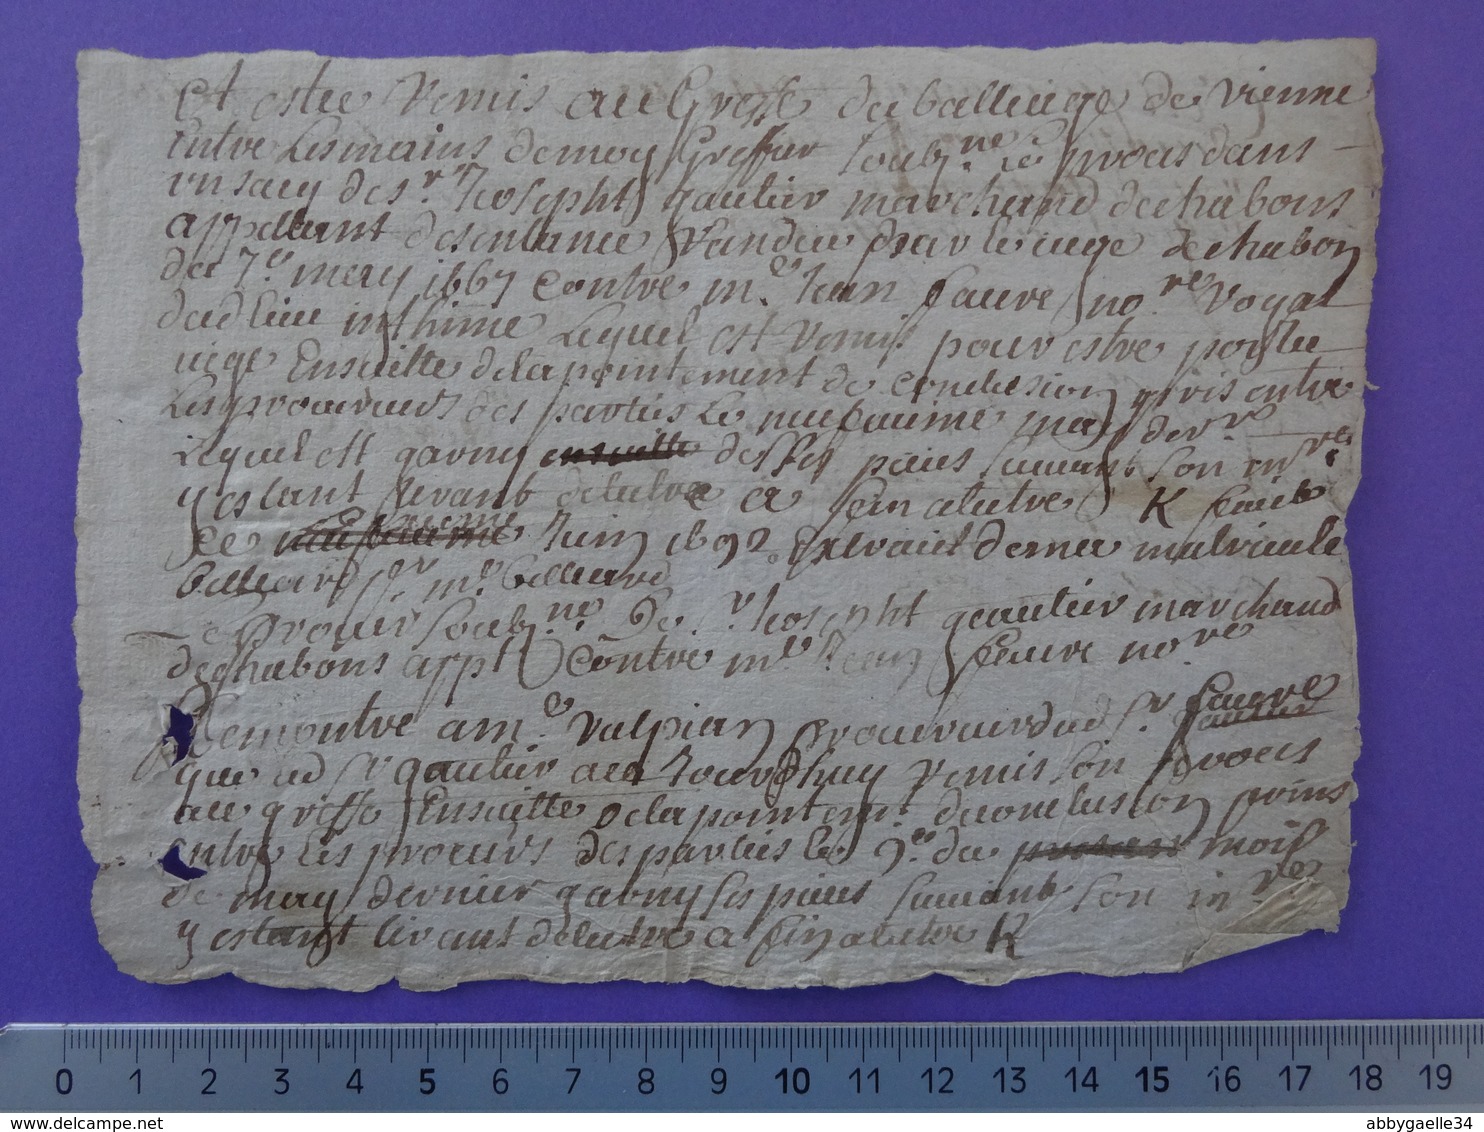 et estee remis au Greffe du balliage de vienne
Entre les mains de moy Greffier soubz.ne le proces dans
un sacq de s.r Joseph gautier marchand de chabons
appellant de sentance randue par le iuge de chabon
du 7.e may 1667 contre m.e Jean faure no.re royal
dud lieu inthimé Lequel est remis pour estre porste
iugé Ensuitte de lapointement de conclusion pris entre
Les procureurs des parties le neufvieme may der.r
Lequel est garny ensuitte desses pieces suivant son inv.re
y estant suivant delettre a fin alettre K faict
ce neufvieme Juin 1692 Extraict de ma matricule
belluard p.r m.e belluard
Le Procur soub.ne De s.r Joseph gautier marchand
de chabons app.t contre m.e Jean faure no.re
Remontre a m.e valpian procureur dud s.r faure gautier
que led s.r gautier au Jourdhuy remis son proces
au greffe Ensuitte de lapointem.t de conclusion prins
entre les procurs des parties le 9.e du present mois
de may dernier garny ses pieces suivant son in.re
y estant suivant delettre a fin alettre K
0 1 2 3 4 5 6 7 8 9 10 11 12 13 14 15 16 17 18 19
abbygaelle34